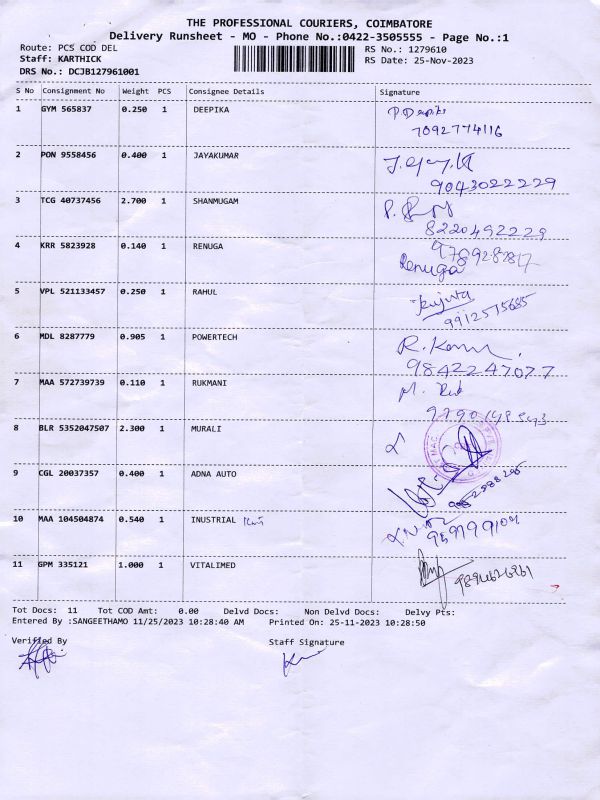 THE PROFESSIONAL COURIERS, COIMBATORE
Delivery Runsheet - MO - Phone No.:0422-3505555 - Page No.:1
Route: PCS COD DEL RS No.: 1279610
Staff: KARTHICK RS Date: 25-Nov-2023
DRS No.: DCJB127961001
S No Consignment No Weight PCS Consignee Details Signature
1 GYM 565837 0.250 1 DEEPIKA P. Deepika
7092774116
2 PON 9558456 0.400 1 JAYAKUMAR
9043022229
3 TCG 40737456 2.700 1 SHANMUGAM
8220492229
4 KRR 5823928 0.140 1 RENUGA
Renuga
5 VPL 521133457 0.250 1 RAHUL
9912575685
6 MDL 8287779 0.905 1 POWERTECH
9842247077
7 MAA 572739739 0.110 1 RUKMANI
8 BLR 5352047507 2.300 1 MURALI
9 CGL 20037357 0.400 1 ADNA AUTO
10 MAA 104504874 0.540 1 INUSTRIAL
11 GPM 335121 1.000 1 VITALIMED
Tot Docs: 11 Tot COD Amt: 0.00 Delvd Docs: Non Delvd Docs: Delvy Pts:
Entered By :SANGEETHAMO 11/25/2023 10:28:40 AM Printed On: 25-11-2023 10:28:50
Verified By Staff Signature